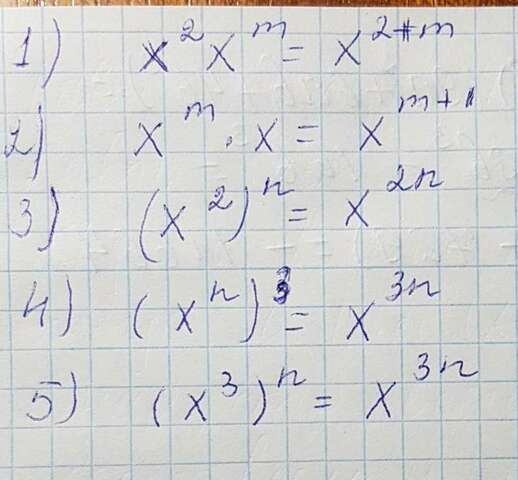 1) x² xᵐ = x²⁺ᵐ
2) xᵐ · x = xᵐ⁺¹
3) (x²)ⁿ = x²ⁿ
4) (xⁿ)³ = x³ⁿ
5) (x³)ⁿ = x³ⁿ